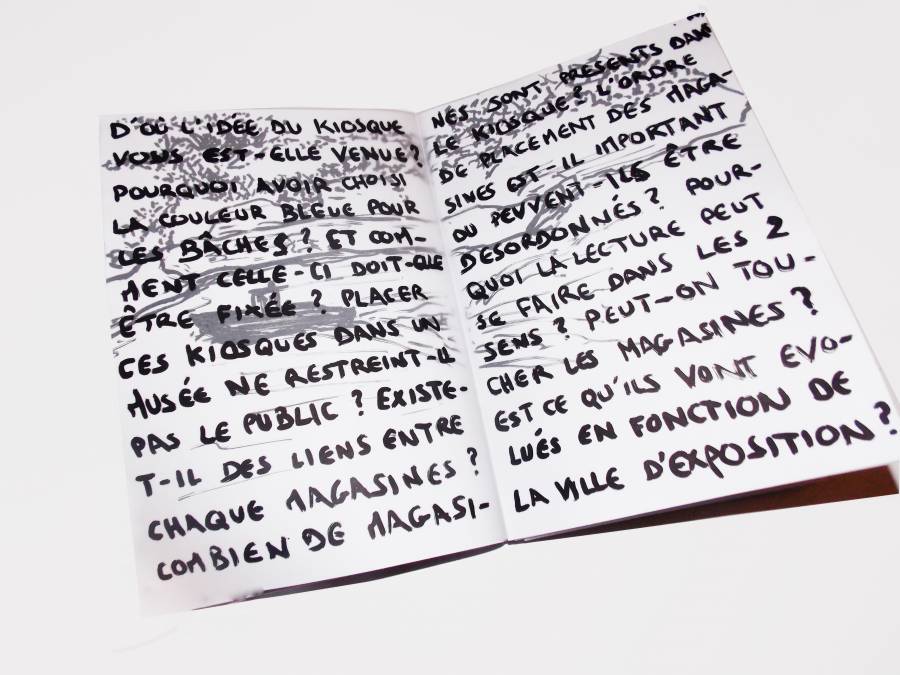 D'OÙ L'IDÉE DU KIOSQUE
VOUS EST-ELLE VENUE?
POURQUOI AVOIR CHOISI
LA COULEUR BLEUE POUR
LES BÂCHES? ET COM-
MENT CELLE-CI DOIT-ELLE
ÊTRE FIXÉE? PLACER
CES KIOSQUES DANS UN
MUSÉE NE RESTREINT-IL
PAS LE PUBLIC? EXISTE-
T-IL DES LIENS ENTRE
CHAQUE MAGASINES?
COMBIEN DE MAGASI-
NES SONT PRESENTS DANS
LE KIOSQUE? L'ORDRE
DE PLACEMENT DES MAGA-
SINES EST-IL IMPORTANT
OU PEUVENT-ILS ÊTRE
DESORDONNÉS? POUR-
QUOI LA LECTURE PEUT
SE FAIRE DANS LES 2
SENS? PEUT-ON TOU-
CHER LES MAGASINES?
EST CE QU'ILS VONT EVO-
LUÉS EN FONCTION DE
LA VILLE D'EXPOSITION?